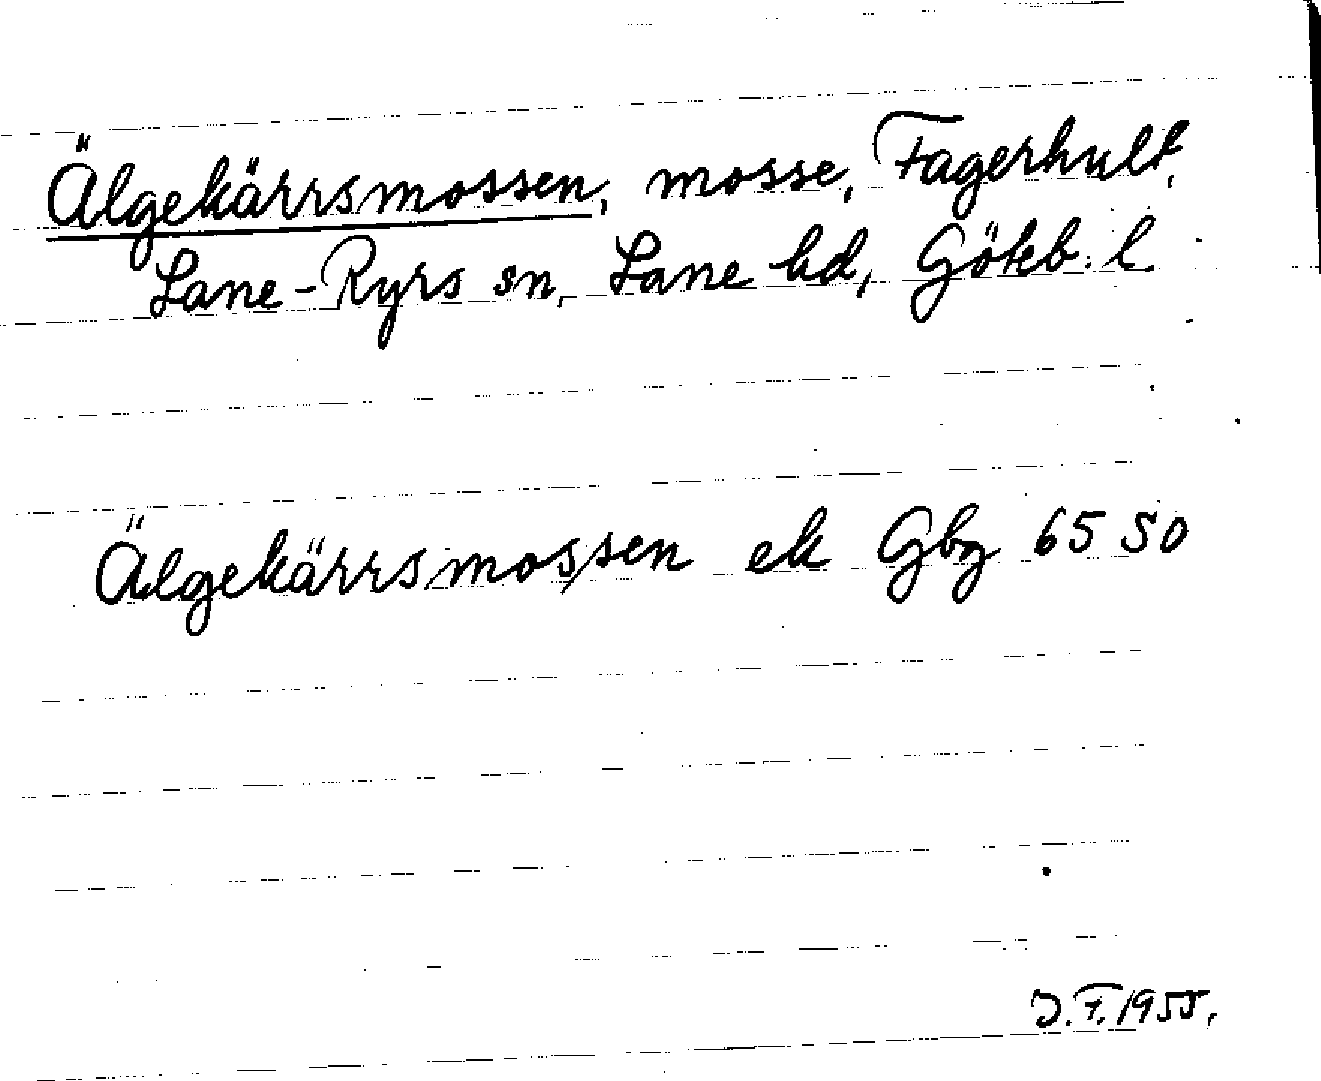 Älgekärrsmossen, mosse, Fagerhult,
Lane-Ryrs sn, Lane hd, Götb. l
Älgekärrsmossen ek Gbg 65 SO
J.F. 1955.